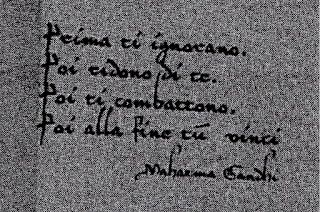 Prima ti ignorano.
Poi ridono di te.
Poi ti combattono.
Poi alla fine tu vinci
Mahatma Gandhi